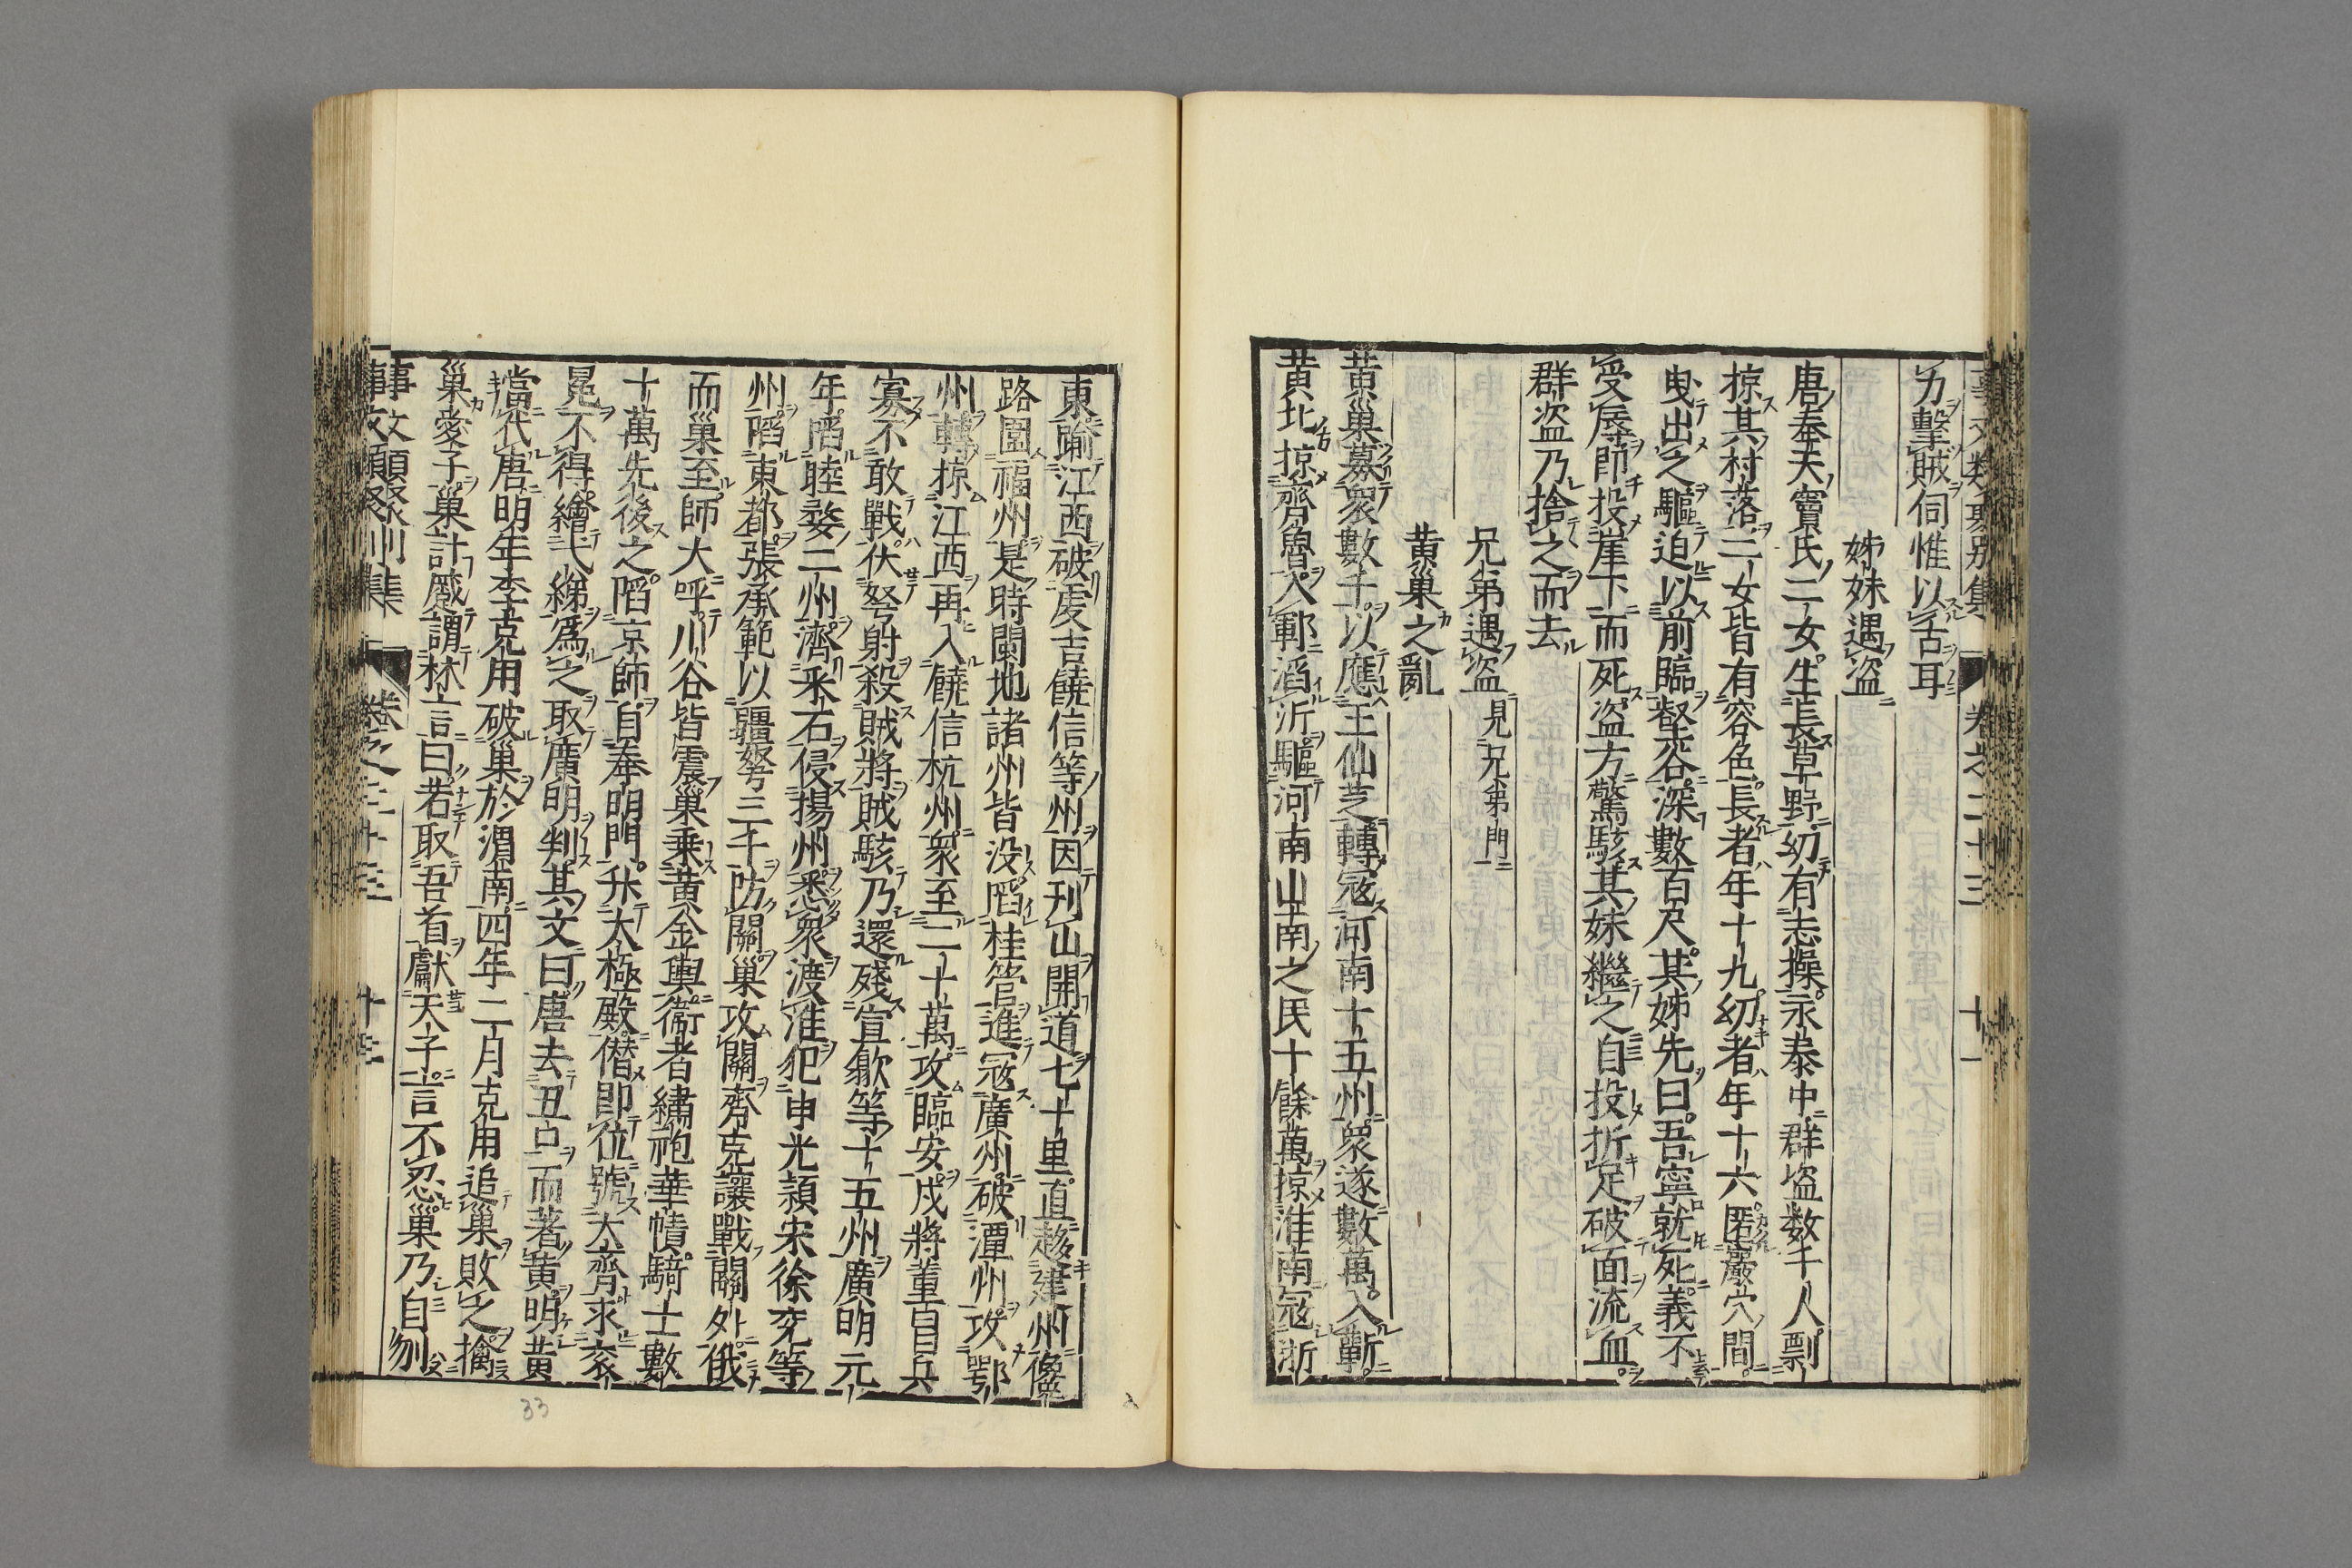 事文類聚別集 卷之二十三 十一
力擊賊伺惟以舌耳
姊妹遇盜
唐奉天竇氏二女生長草野幼有志操永泰中群盜数千人剽
掠其村落二女皆有容色長者年十九幼者年十六匿巖穴間
曳出之驅迫以前臨壑谷深數百尺其姊先曰吾寧就死義不
受辱即投崖下而死盜方驚駭其妹繼之自投折足破面流血
群盜乃捨之而去
兄弟遇盜 見兄弟門
黄巢之亂
黄巢募衆數千以應王仙芝轉寇河南十五州衆遂數萬入蘄
黄北掠齊魯入鄆滔沂驅河南山南之民十餘萬掠淮南寇浙
東踰江西破虔吉饒信等州因刊山開道七十里直趍建州儳
路圍福州是時閩地諸州皆没陷桂管進寇廣州破潭州攻鄂
州轉掠江西再入饒信杭州衆至二十萬攻臨安戍將董昌兵
寡不敢戰伏弩射殺賊將賊駭乃還殘宣歙等十五州廣明元
年陷睦婺二州濟采石侵揚州悉衆渡淮犯申光潁宋徐兗等
州陷東都張承範以疆弩三千防關巢攻關齊克讓戰關外俄
而巢至師大呼川谷皆震巢乗黄金輿衛者繡袍華幘騎士數
十萬先後之陷京師自奉明門升太極殿僭即位號大齊求衮
冕不得繪弋綈爲之取廣明判其文曰唐去丑口而著黄明黄
當代唐明年李克用破巢於渭南四年二月克用追巢敗之擒
巢愛子巢計蹙謂林言曰若取吾首獻天子言不忍巢乃自刎
事文類聚別集 卷之二十三 十二
33